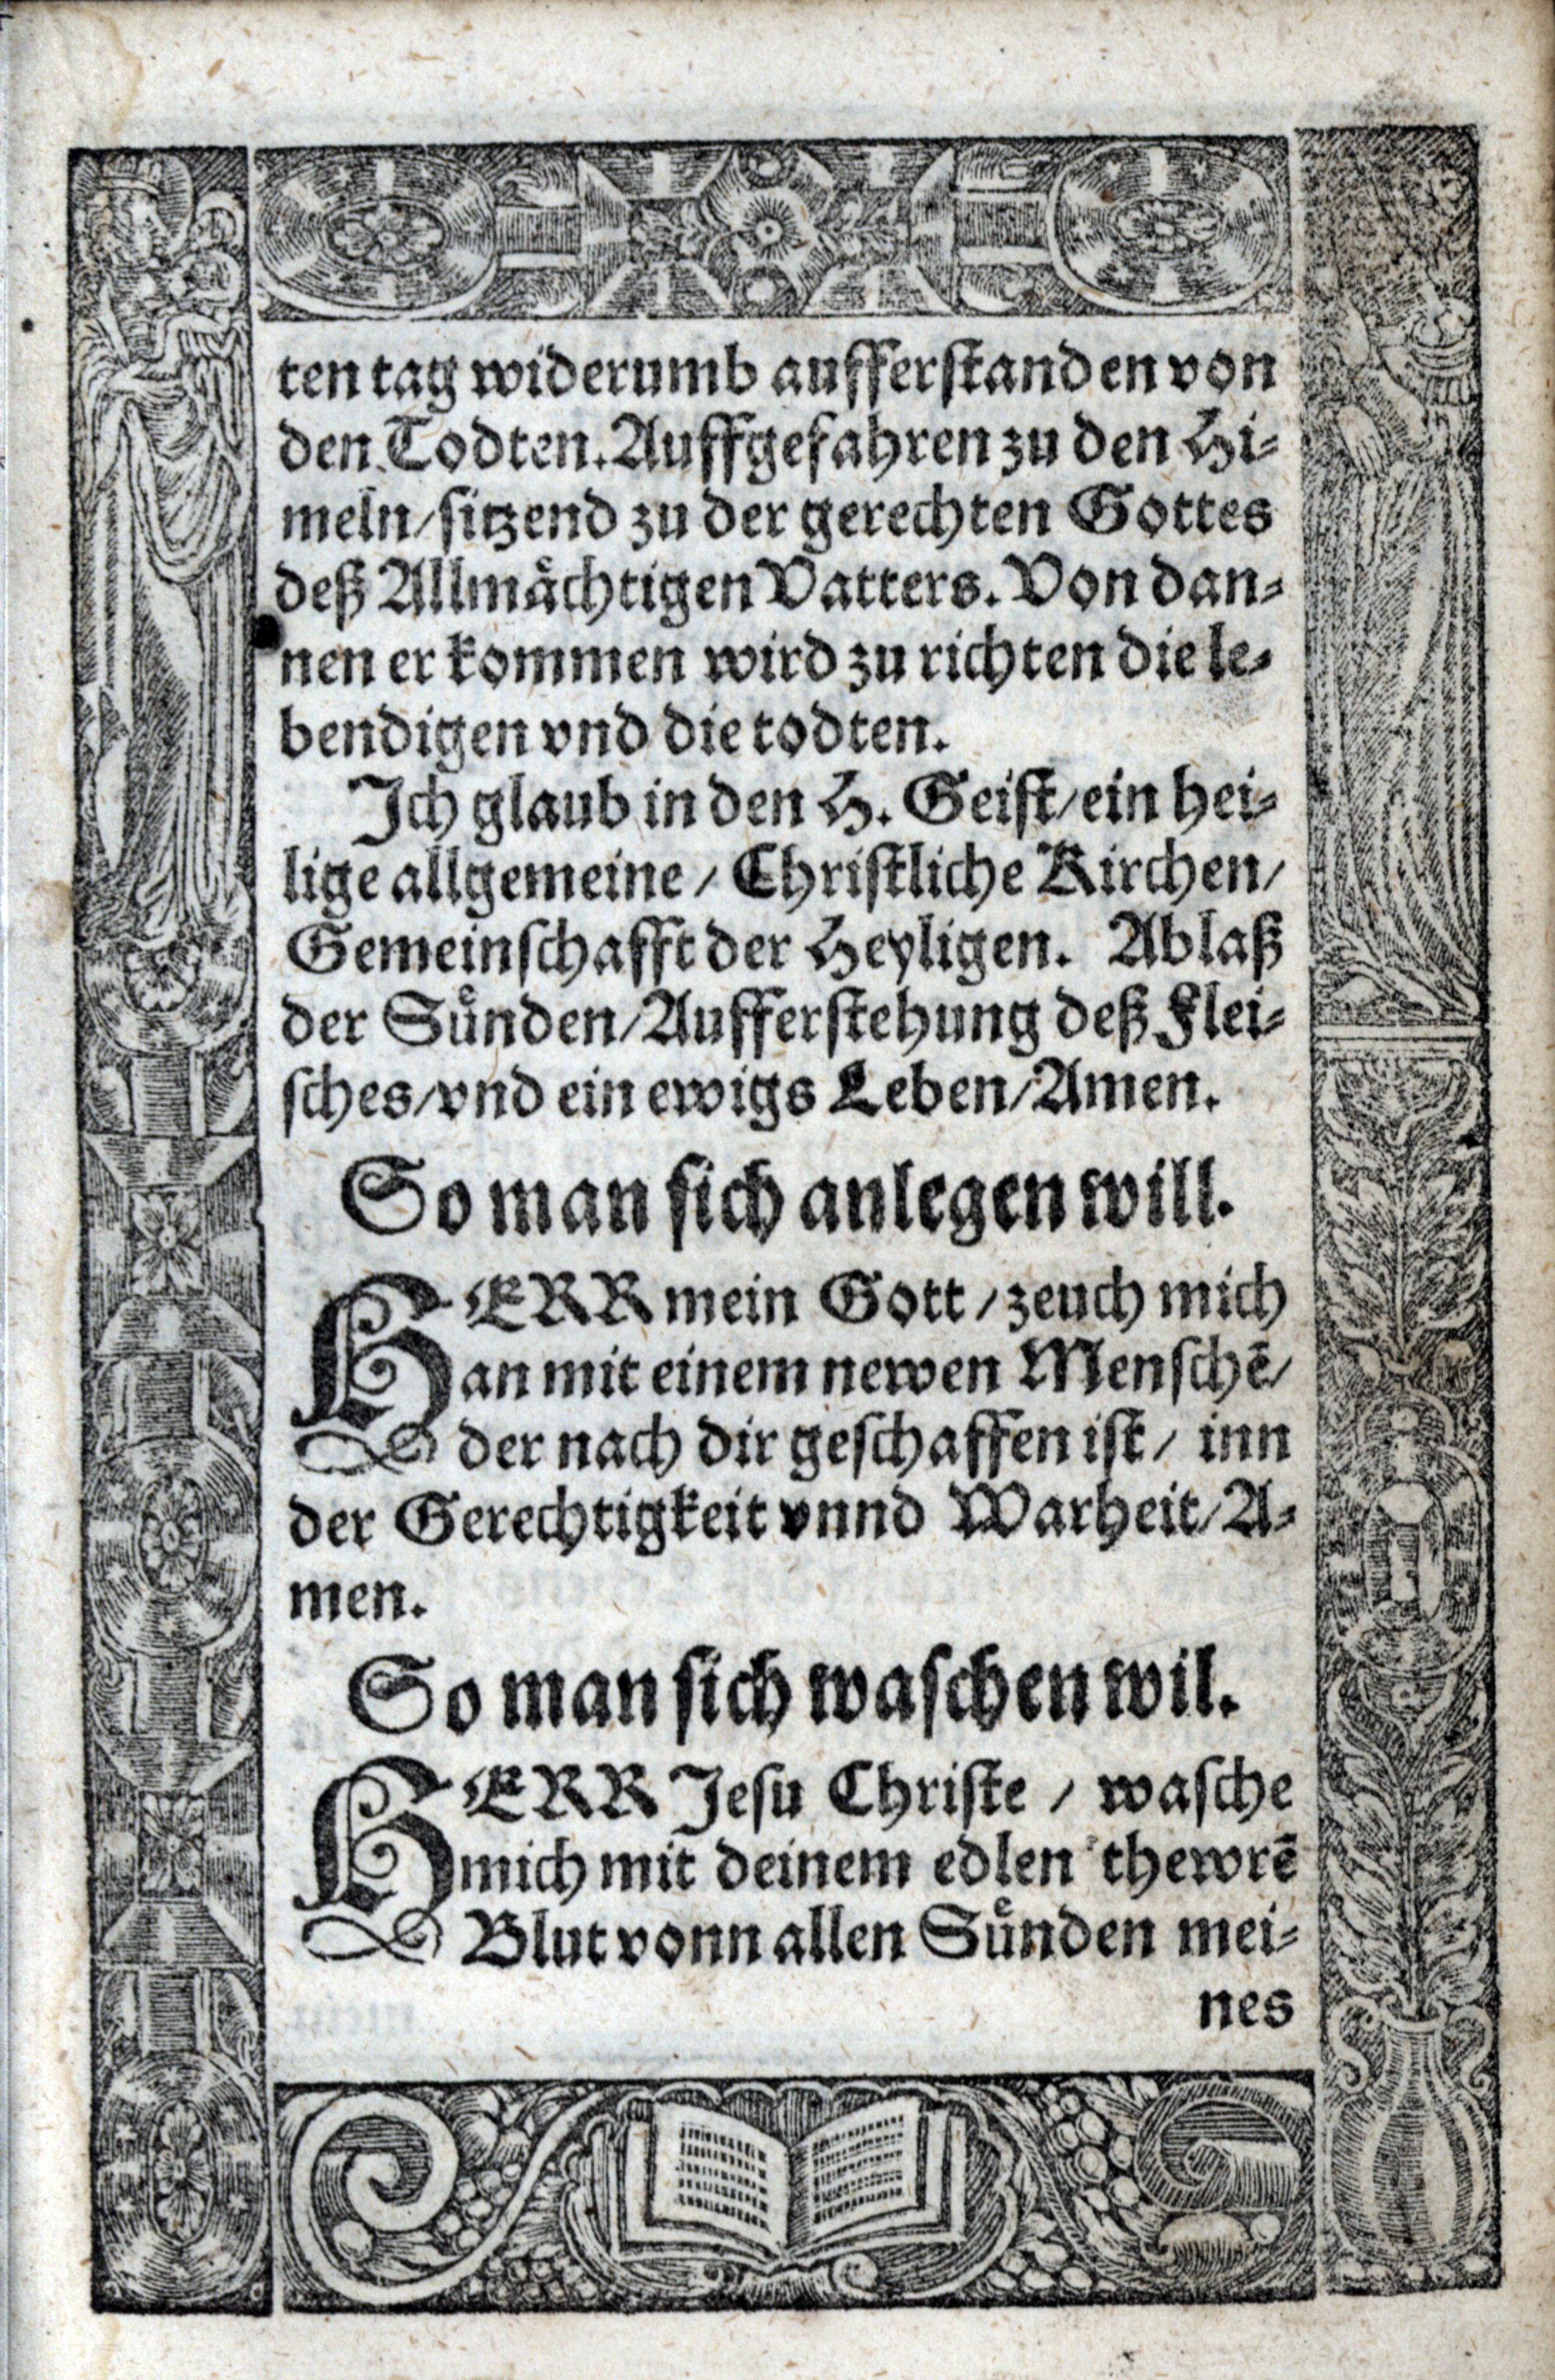 ten tag widerumb aufferstanden von
den Todten. Auffgefahren zu den Hi⸗
meln/sitzend zu der gerechten Gottes
deß Allmaͤchtigen Vatters. Von dan⸗
nen er kommen wird zu richten die le⸗
bendigen vnd die todten.
Ich glaub in den H. Geist/ein hei⸗
lige allgemeine / Christliche Kirchen/
Gemeinschafft der Heyligen. Ablaß
der Suͤnden/Aufferstehung deß Flei⸗
sches/vnd ein ewigs Leben/Amen.
So man sich anlegen will.
HERR mein Gott / zeuch mich
an mit einem newen Menschē/
der nach dir geschaffen ist / inn
der Gerechtigkeit vnnd Warheit/A⸗
men.
So man sich waschen wil.
HERR Jesu Christe / wasche
mich mit deinem edlen thewrē
Blut vonn allen Suͤnden mei⸗
nes